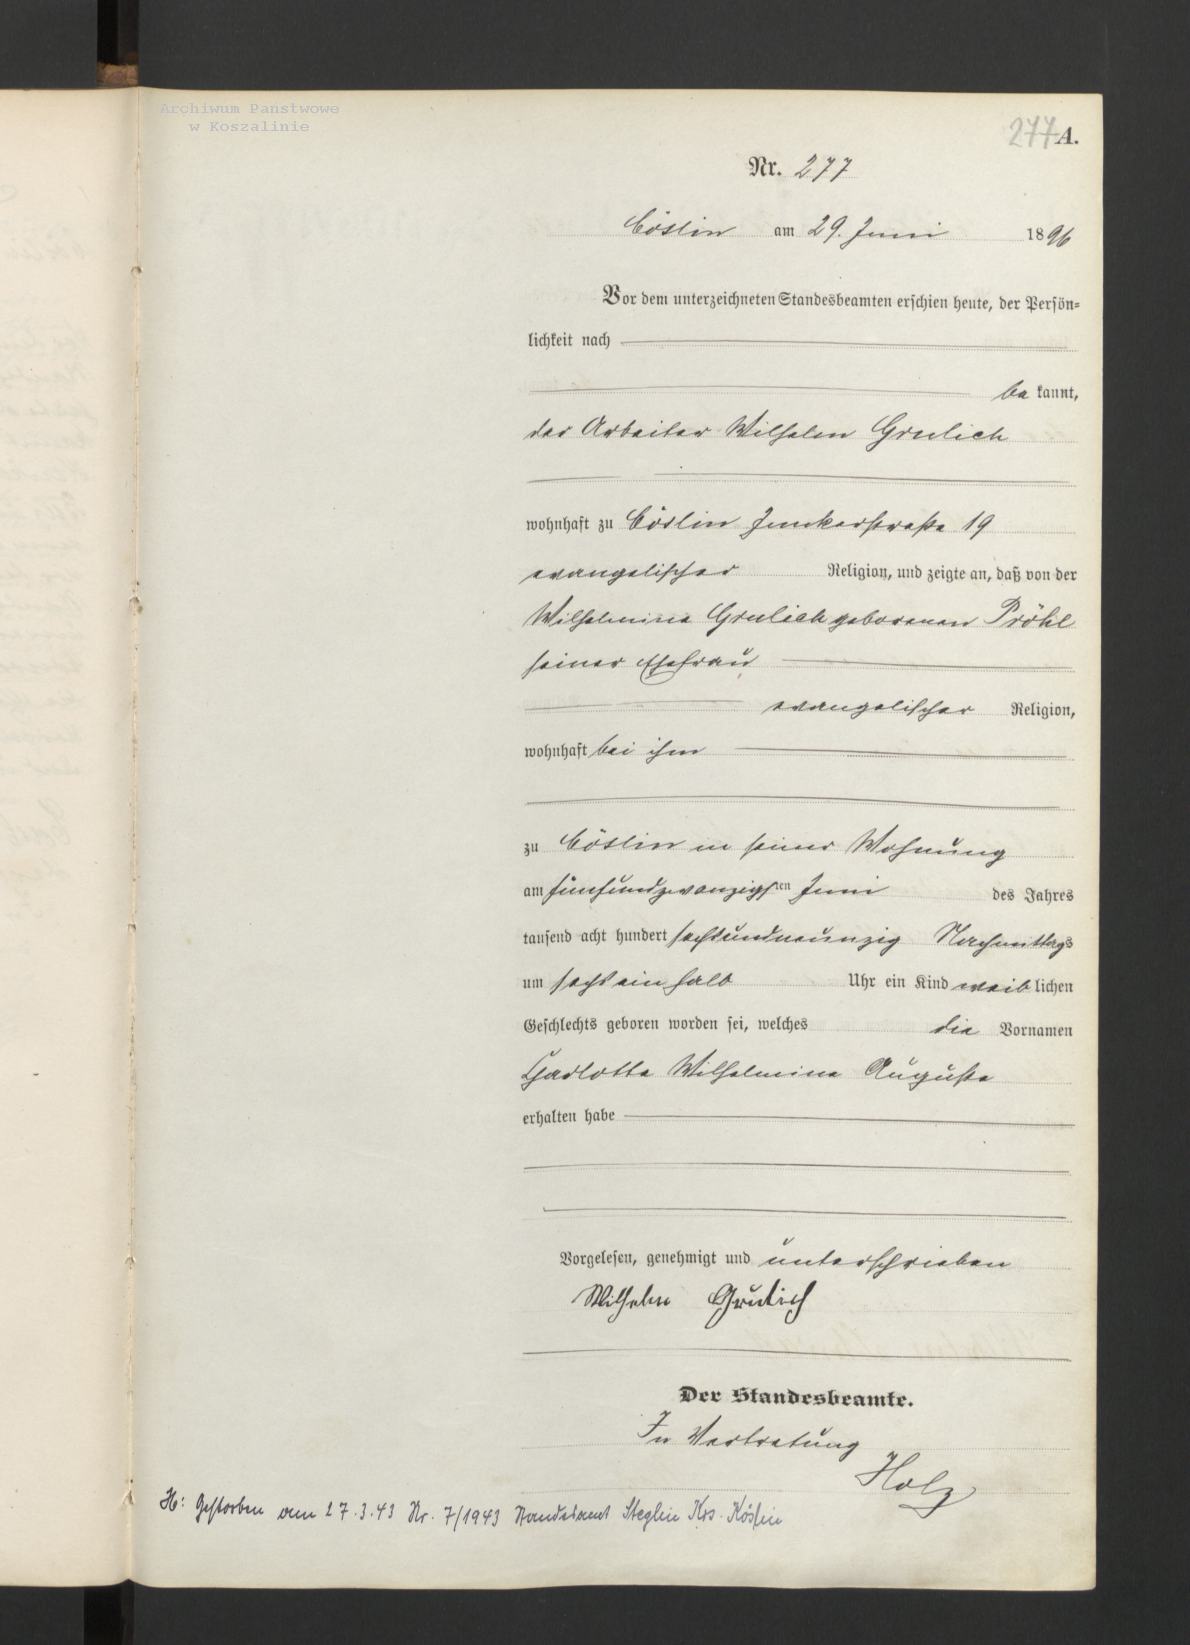 Archiwum Panstwowe
w Koszalinie
277 A.
Nr. 277
Cöslin am 29. Juni 1896
Vor dem unterzeichneten Standesbeamten erschien heute, der Persön=
lichkeit nach
be kannt,
der Arbeiter Wilhelm Grulich
wohnhaft zu Cöslin Junkerstraße 19
evangelischer Religion, und zeigte an, daß von der
Wilhelmine Grulich geborenen Pröhl
seiner Ehefrau
evangelischer Religion,
wohnhaft bei ihm
zu Cöslin in seiner Wohnung
am fünfundzwanzigsten Juni des Jahres
tausend acht hundert sechsundneunzig Nachmittags
um sechs ein halb Uhr ein Kind weiblichen
Geschlechts geboren worden sei, welches die Vornamen
Charlotte Wilhelmine Auguste
erhalten habe
Vorgelesen, genehmigt und unterschrieben
Wilhelm Grulich
Der Standesbeamte.
In Vertretung
Holz
H: Gestorben am 27.3.43 Nr. 7/1943 Standesamt Steglin Krs. Köslin